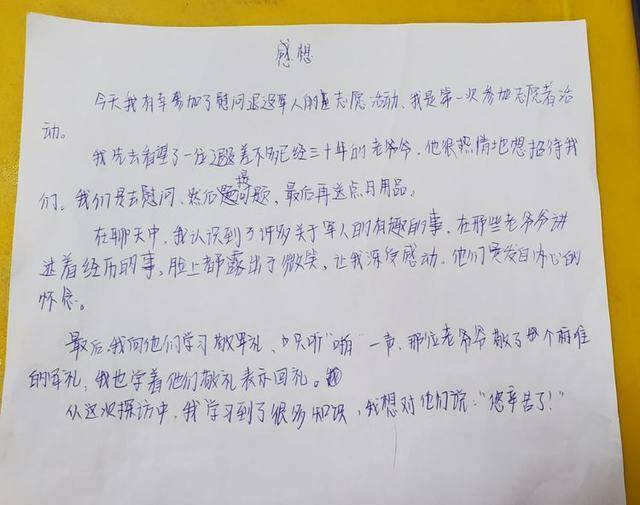 感想
今天我有幸参加了慰问退役军人的志愿活动、我是第一次参加志愿者活
动。
我先去看望了一位退役差不多已经三十年的老爷爷,他很热情地想招待我
们。我们是去慰问、然后提问题,最后再送点日用品。
在聊天中,我认识到了许多关于军人的有趣的事、在那些老爷爷讲
述着经历的事,脸上都露出了微笑,让我深受感动,他们是发自内心的
怀念。
最后,我向他们学习敬军礼、只听“啪”一声,那位老爷爷敬了一个标准
的军礼,我也学着他们敬礼表示回礼。
从这次探访中,我学习到了很多知识,我想对他们说:“您辛苦了!”